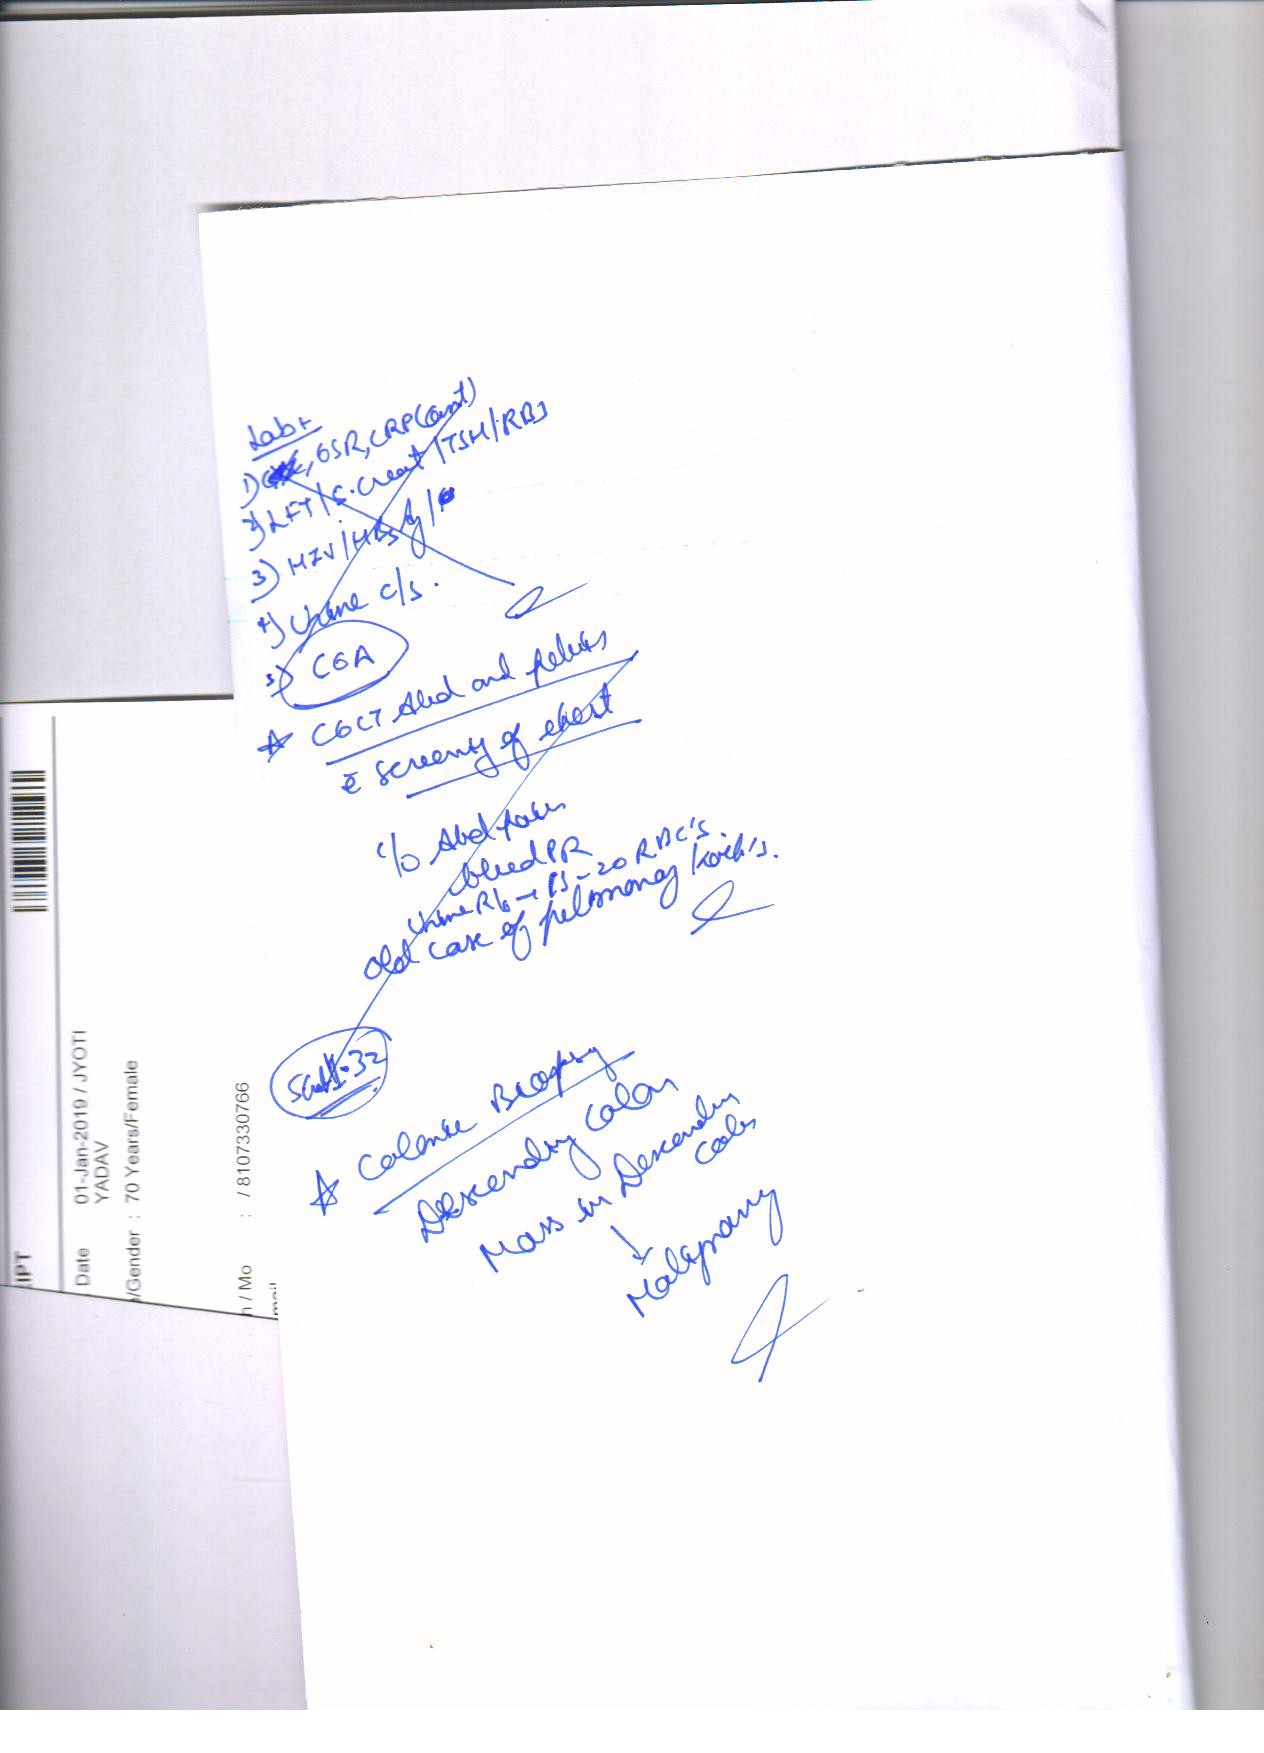 Labs
1) ESR, CRP (
2) LFT / S. Creat / TSH / RBS
3) HIV / HBsAg /
4) Urine c/s.
5) CEA
☆ CECT Abd and pelvis
c̄ Screening of chest
c/o Abd pain
bleed PR
Urine R/ → 15-20 RBC's.
old case of pulmonary Koch's.
32
☆ Colonic Biopsy
Descending Colon
Mass in Descending
Colon
↓
Malignancy
IPT
Date 01-Jan-2019 / JYOTI
YADAV
/Gender : 70 Years/Female
n / Mo : / 8107330766
mail